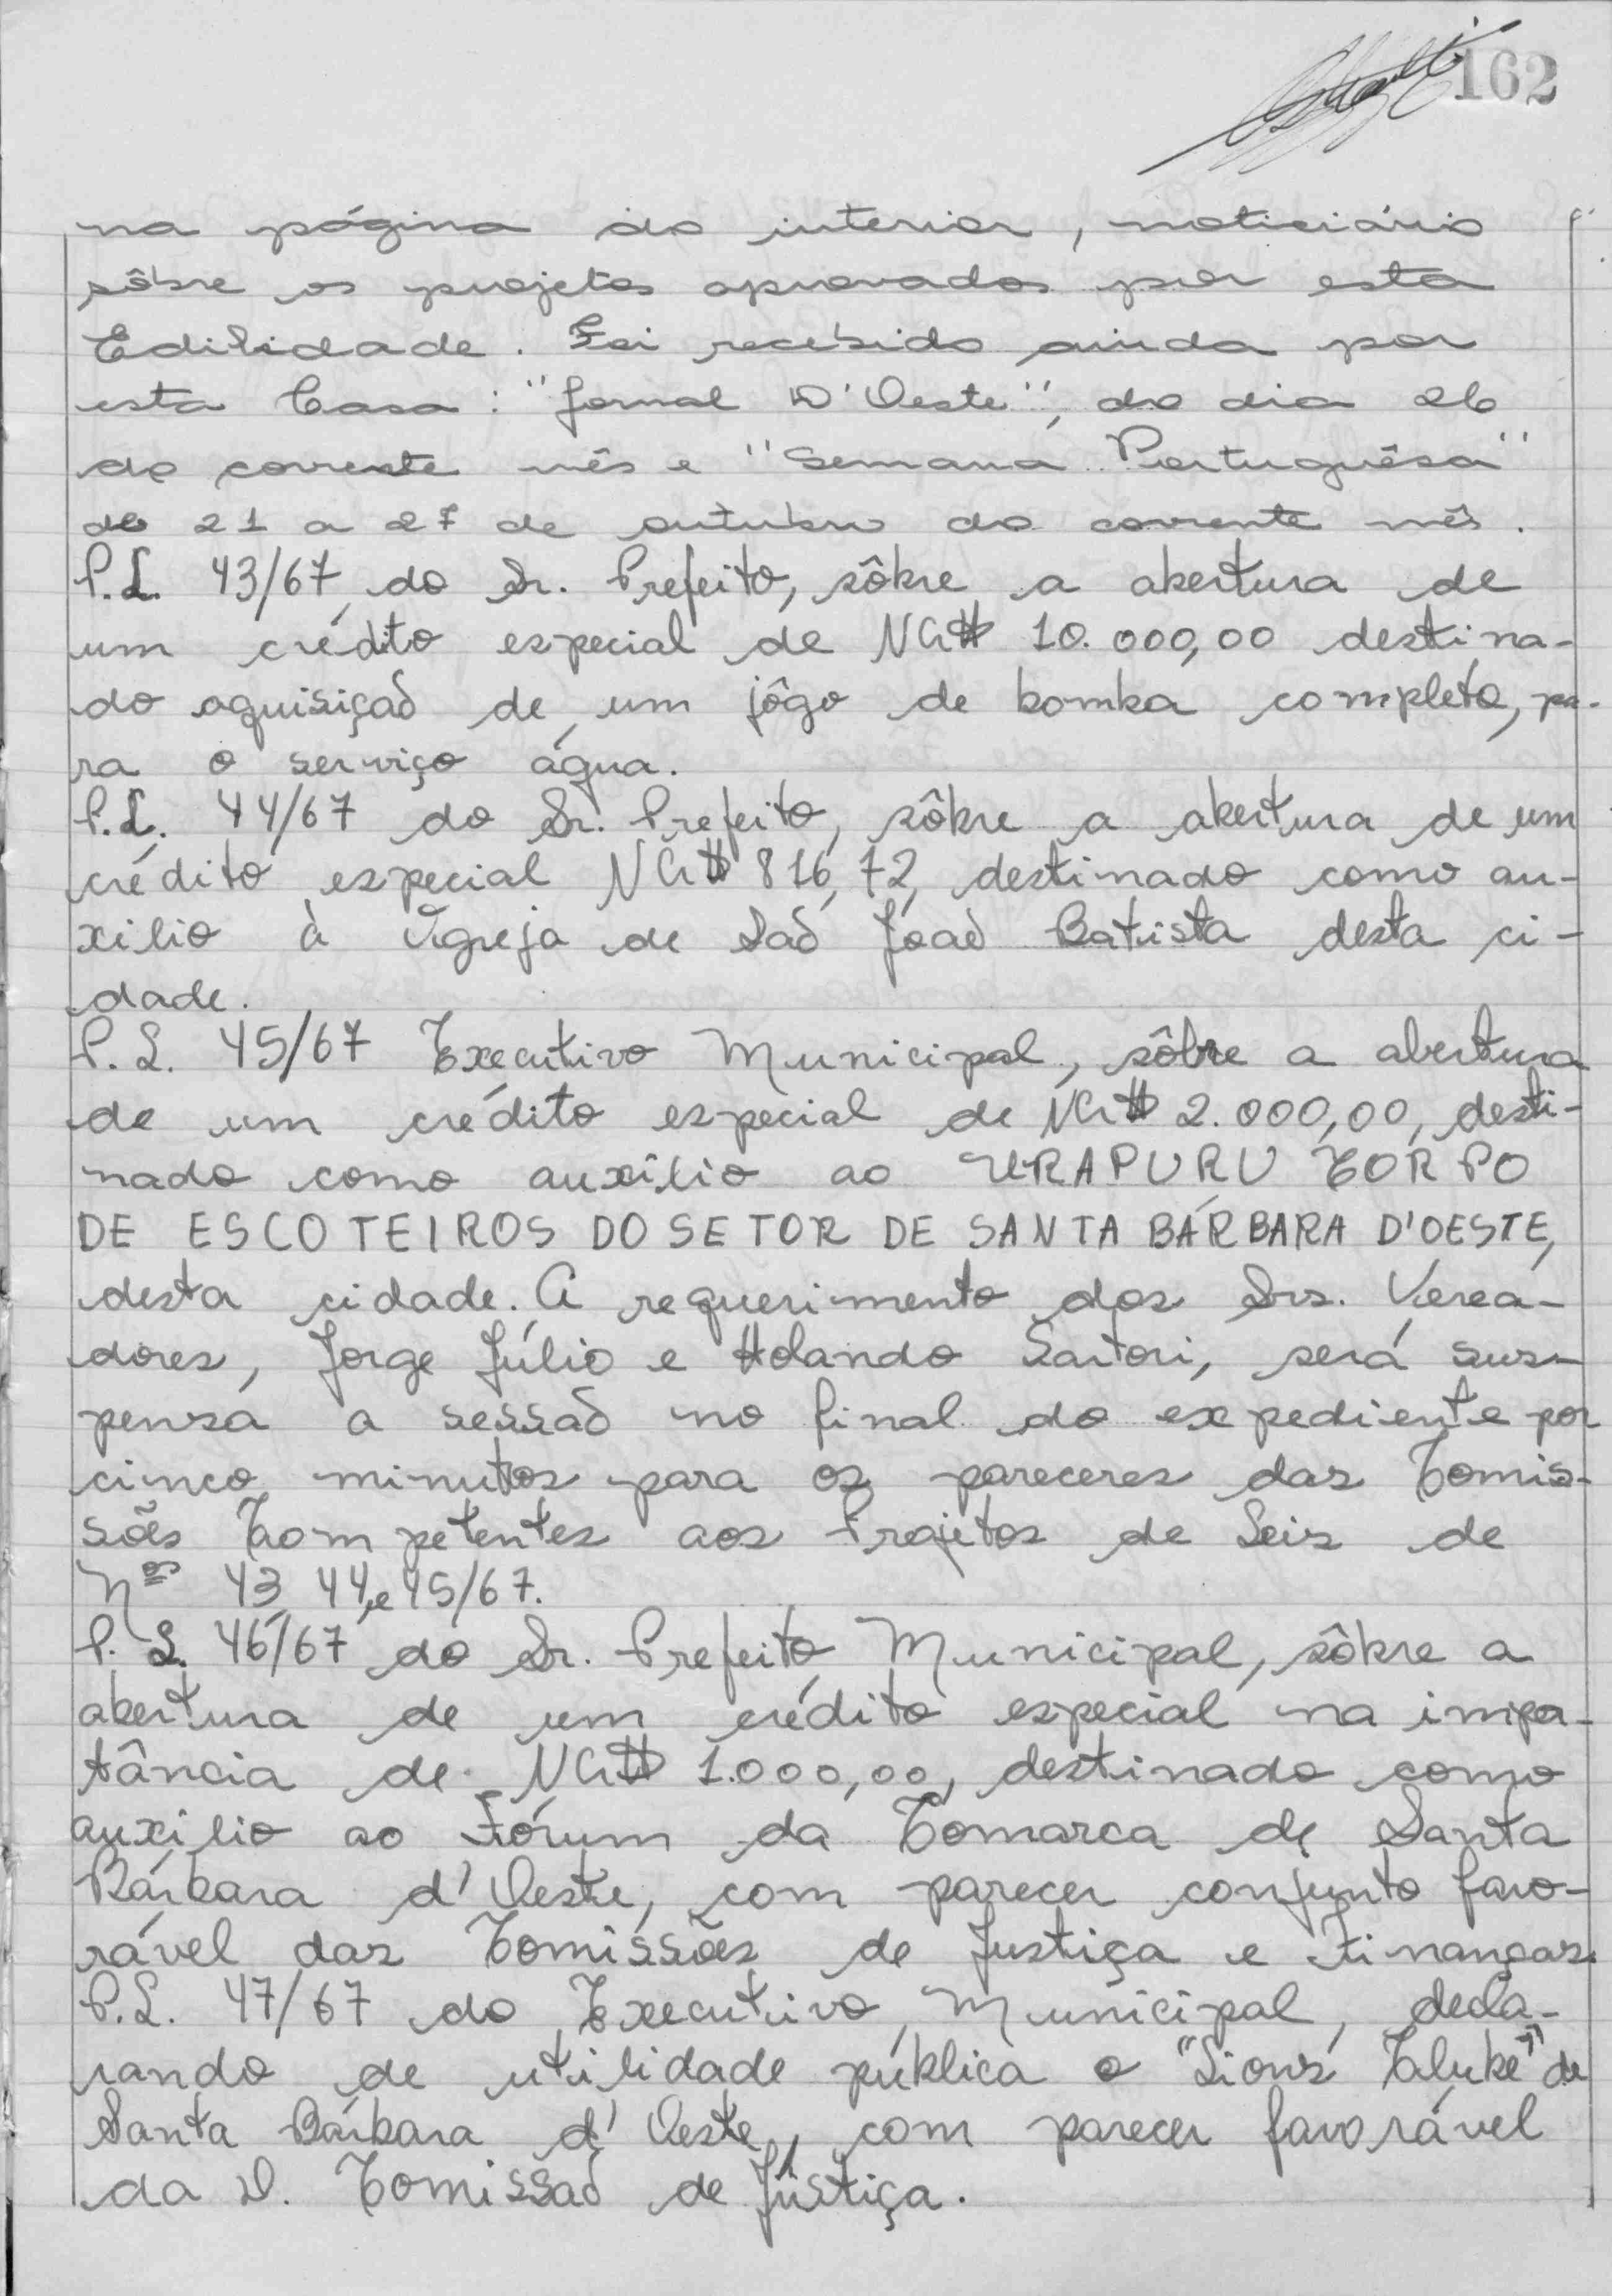 162
na página do interior, noticiário
sôbre os projetos aprovados por esta
Edilidade. Foi recebido ainda por
esta Casa: "Jornal D'Oeste", do dia 26
do corrente mês e "Semana Portuguêsa"
de 21 a 27 de outubro do corrente mês.
P.L. 43/67, do Sr. Prefeito, sôbre a abertura de
um crédito especial de NCr$ 10.000,00 destina-
do aquisição de um jôgo de bomba completo, pa-
ra o serviço água.
P.L. 44/67 do Sr. Prefeito, sôbre a abertura de um
crédito especial NCr$ 816,72, destinado como au-
xilio à Igreja de São João Batista desta ci-
dade.
P.L. 45/67 Executivo Municipal, sôbre a abertura
de um crédito especial de NCr$ 2.000,00, desti-
nado como auxílio ao URAPURU CORPO
DE ESCOTEIROS DO SETOR DE SANTA BÁRBARA D'OESTE,
desta cidade. A requerimento dos Srs. Verea-
dores, Jorge Júlio e Holando Sartori, será sus-
pensa a sessão no final do expediente por
cinco minutos para os pareceres das Comis-
sões Competentes aos Projetos de Leis de
Nos 43, 44, e 45/67.
P.L. 46/67 do Sr. Prefeito Municipal, sôbre a
abertura de um crédito especial na impor-
tância de NCr$ 1.000,00, destinado como
auxilio ao Fórum da Comarca de Santa
Bárbara d'Oeste, com parecer conjunto favo-
rável das Comissões de Justiça e Finanças.
P.L. 47/67 do Executivo Municipal, decla-
rando de utilidade pública o "Lions Clube" de
Santa Bárbara d'Oeste, com parecer favorável
da D. Comissão de Justiça.